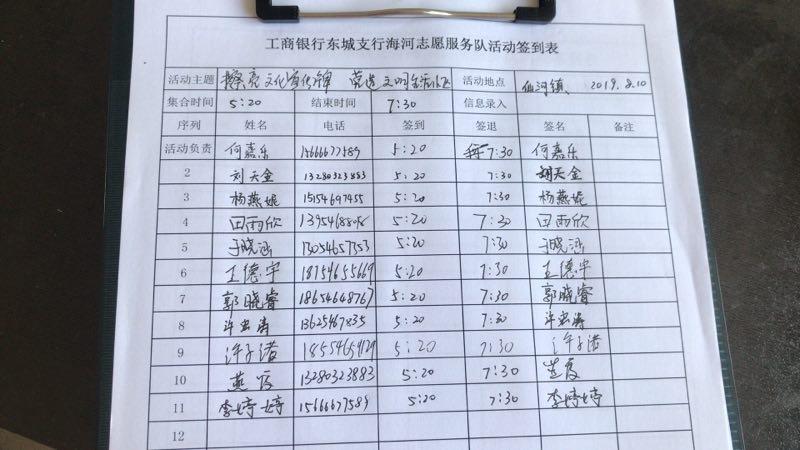 工商银行东城支行海河志愿服务队活动签到表
活动主题 擦亮文化宣传牌 营造文明生活小区 活动地点 仙河镇、 2019.8.10
集合时间 5:20 结束时间 7:30 信息录入
序列 姓名 电话 签到 签退 签名 备注
活动负责 何嘉乐 15666677589 5:20 7:30 何嘉乐
2 刘天金 13280323883 5:20 7:30 刘天金
3 杨燕妮 15154697455 5:20 7:30 杨燕妮
4 田雨欣 5:20 7:30 田雨欣
5 于晓涵 13054657353 5:20 7:30 于晓涵
6 王德宇 18754655669 5:20 7:30 王德宇
7 郭晓睿 18654648767 5:20 7:30 郭晓睿
8 13625467835 5:20 7:30
9 许子诺 5:20 7:30 许子诺
10 燕霞 13280323883 5:20 7:30
11 李婷婷 15666677589 5:20 7:30 李婷婷
12